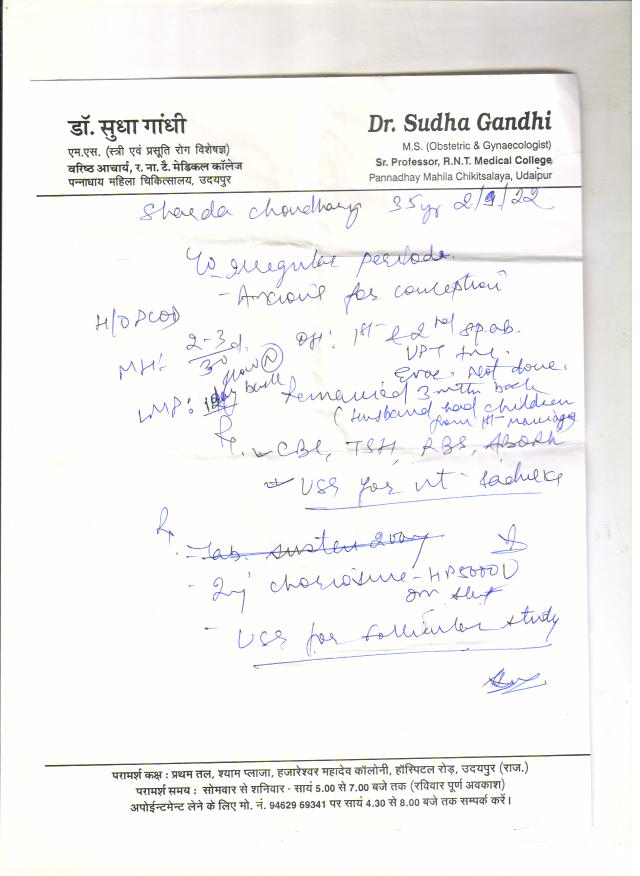 डॉ. सुधा गांधी
एम.एस. (स्त्री एवं प्रसूति रोग विशेषज्ञ)
वरिष्ठ आचार्य, र. ना. टै. मेडिकल कॉलेज
पन्नाधाय महिला चिकित्सालय, उदयपुर
Dr. Sudha Gandhi
M.S. (Obstetric & Gynaecologist)
Sr. Professor, R.N.T. Medical College
Pannadhay Mahila Chikitsalaya, Udaipur
Sharda Choudhary 35yr 2/9/22
irregular periods.
- Anxious for conception
H/O PCOD
MH: 2-3d. / 30 flow N
OH: 1st & 2nd sp. ab.
UPT +ve.
Evac. not done.
LMP: back
Remarried 3 mth back
(Husband had children
from 1st marriage
CBC, TSH, RBS, ABORH
USG for
Rx
- Tab. susten 200mg
- Inj HP 5000 U
- USG for follicular study
परामर्श कक्ष : प्रथम तल, श्याम प्लाजा, हजारेश्वर महादेव कॉलोनी, हॉस्पिटल रोड़, उदयपुर (राज.)
परामर्श समय : सोमवार से शनिवार - सायं 5.00 से 7.00 बजे तक (रविवार पूर्ण अवकाश)
अपोईन्टमेन्ट लेने के लिए मो. नं. 94629 69341 पर सायं 4.30 से 8.00 बजे तक सम्पर्क करें।